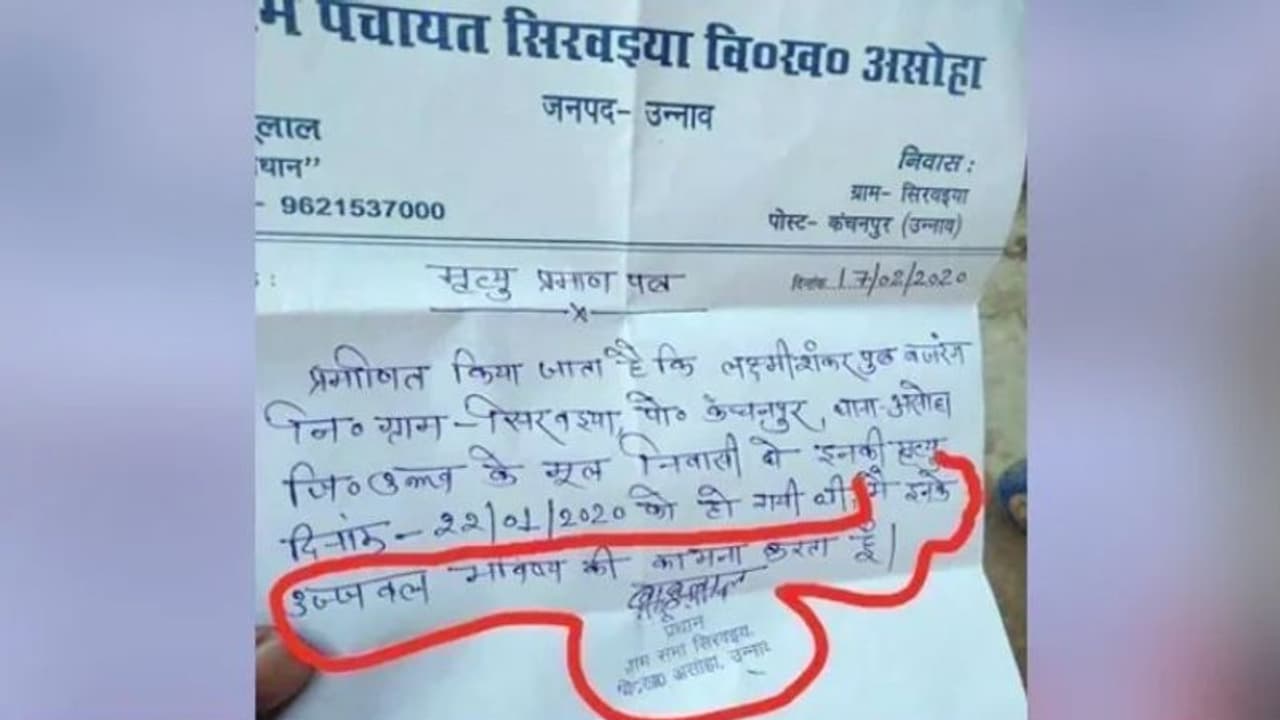 म पंचायत सिरवइया वि०ख० असोहा
जनपद- उन्नाव
ूलाल
धान”
- 9621537000
निवास :
ग्राम- सिरवइया
पोस्ट- कंचनपुर (उन्नाव)
मृत्यु प्रमाण पत्र
दिनांक 17/02/2020
प्रमाणित किया जाता है कि लक्ष्मीशंकर पुत्र बजरंग
नि० ग्राम - सिरवइया, पो० कंचनपुर, थाना-असोहा
जि० उन्नाव के मूल निवासी थे इनकी मृत्यु
दिनांक - 22/01/2020 को हो गयी थी मै इनके
उज्जवल भविष्य की कामना करता हूँ।
प्रधान
ग्राम सभा सिरवइया
वि०ख० असोहा, उन्नाव